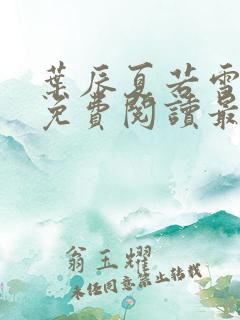 葉辰夏若雪
免費閱讀最
翁玉耀
未經同意禁止轉載